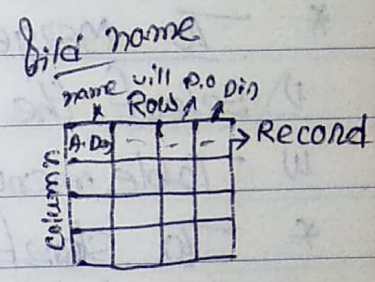 fild name
name vill P.O Din
Row
A. Das - - - Record
Column